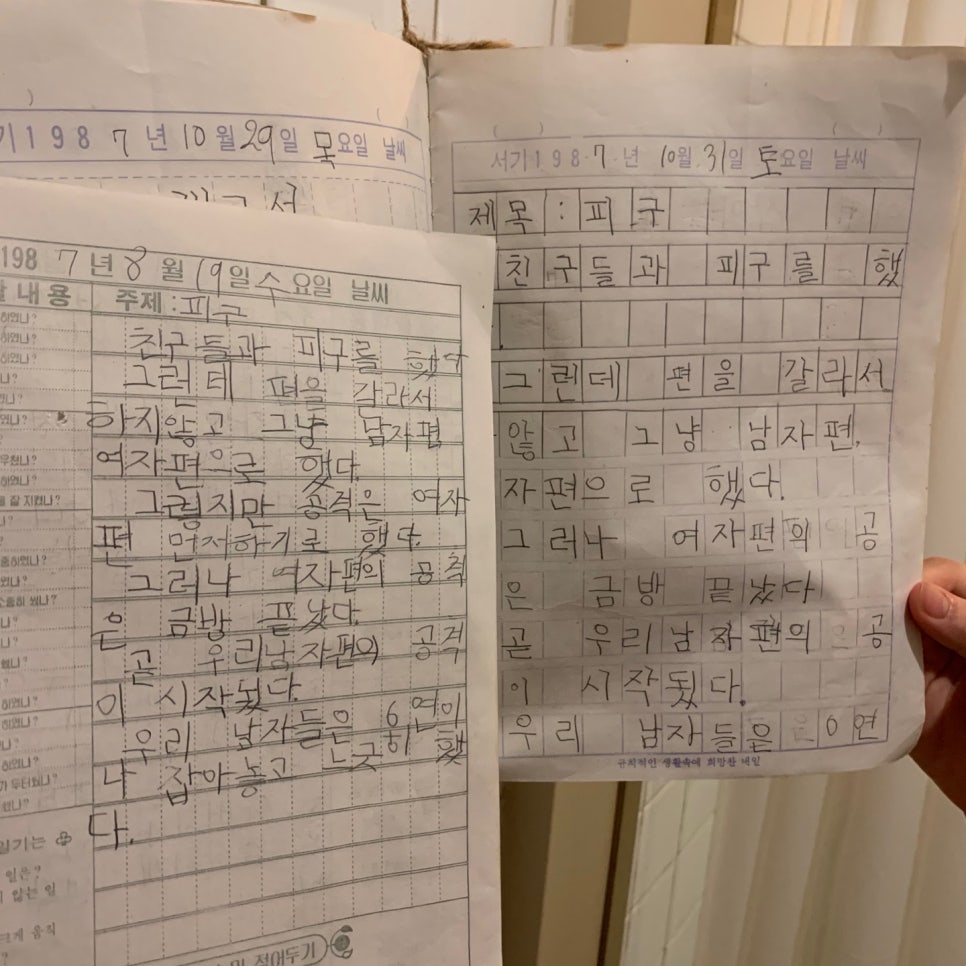 기198 7년 10월 29일 목요일 날씨
198 7년 8월 19일 수요일 날씨
내용
주제 : 피구
친구들과 피구를 했다
그런데 편을 갈라서
하지않고 그냥 남자편
여자편으로 했다.
그렇지만 공격은 여자
편 먼저하기로 했다.
그러나 여자편의 공격
은 금방 끝났다.
곧 우리남자편의 공격
이 시작됬다.
우리 남자들은 6연이
나 잡아놓고 했
다.
일기는
일은?
않는 일
적어두기
서기198 7년 10월 31일 토요일 날씨
제목 : 피구
친구들과 피구를 했
그런데 편을 갈라서
않고 그냥 남자편.
자편으로 했다.
그러나 여자편의 공
은 금방 끝났다
곧 우리남자편의 공
이 시작됬다.
우리 남자들은 연
규칙적인 생활속에 희망찬 내일